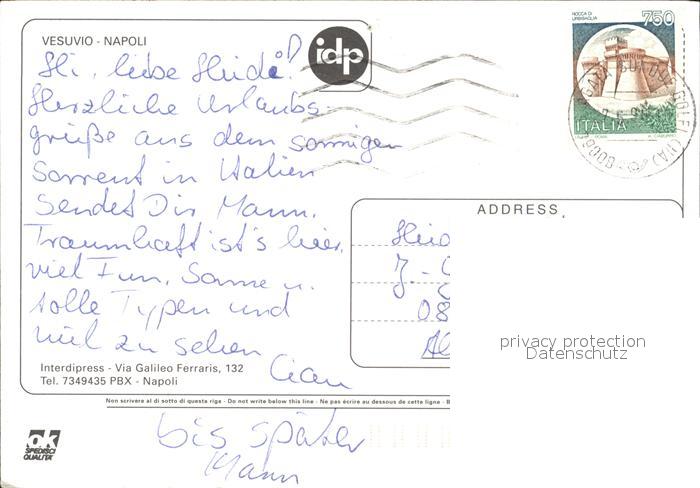 VESUVIO - NAPOLI
idp
ROCCA DI URBISAGLIA
750
ITALIA
Hi, liebe Heide!
Herzliche Urlaubs-
grüße aus dem sonnigen
Sorrent in Italien
sendet Dir Mann.
Traumhaft ist's hier,
viel Fun, Sonne u.
tolle Typen und
viel zu sehen
Ciau
ADDRESS
Heid
J. -
08
Al
privacy protection
Datenschutz
Interdipress - Via Galileo Ferraris, 132
Tel. 7349435 PBX - Napoli
Non scrivere al di sotto di questa riga - Do not write below this line - Ne pas écrire au dessous de cette ligne - B
bis später
Mann
ok
SPEDISCI
QUALITA'